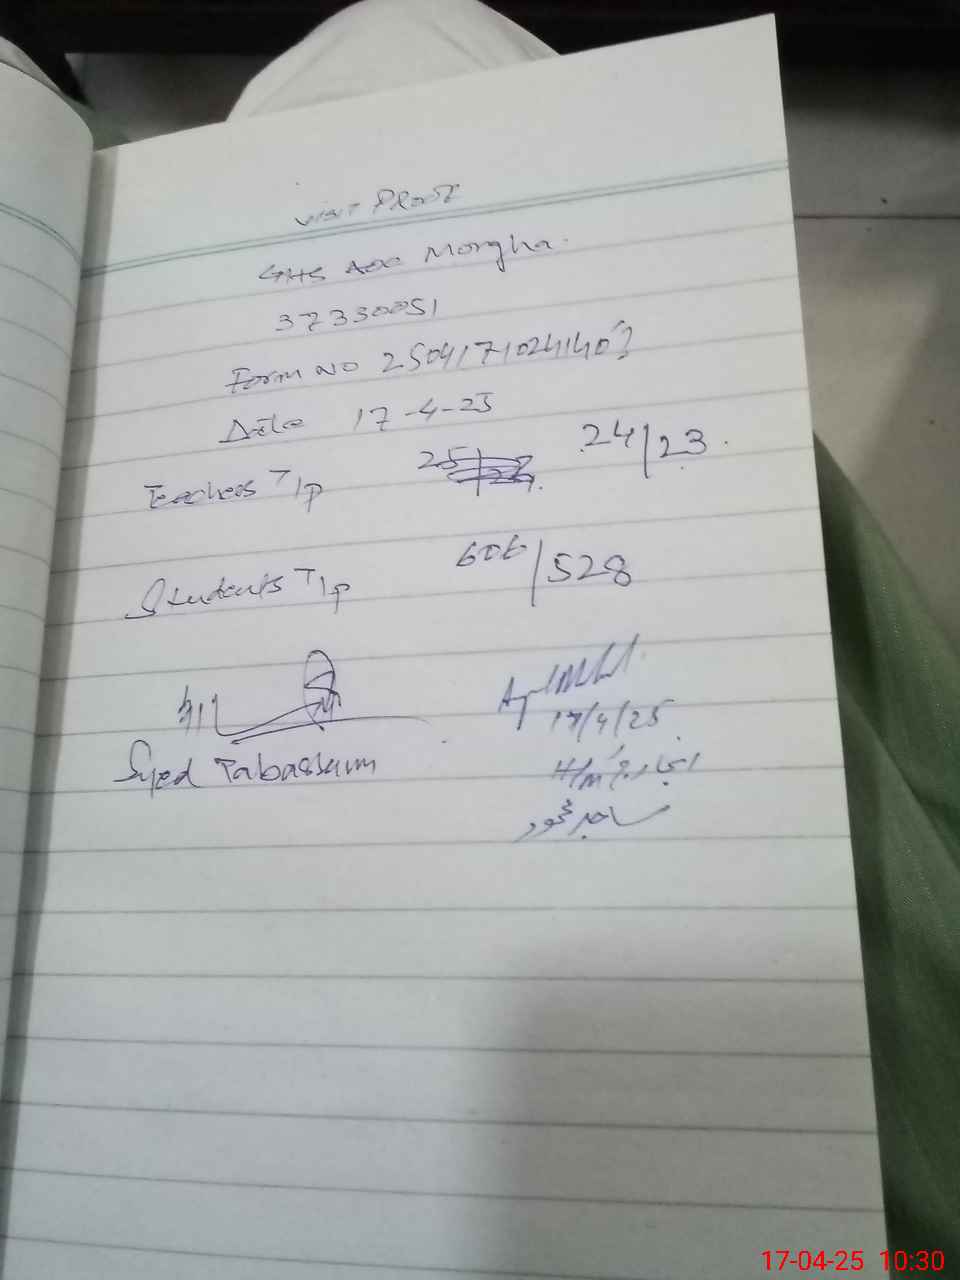 Visit Proof
GHS Ado Morgha.
37330051
Form NO
Date 17-4-25
Teachers T/p 24/23.
Students T/p 606/528
Syed Tabassum
17/4/25
H/m
ساجد محمود
17-04-25 10:30